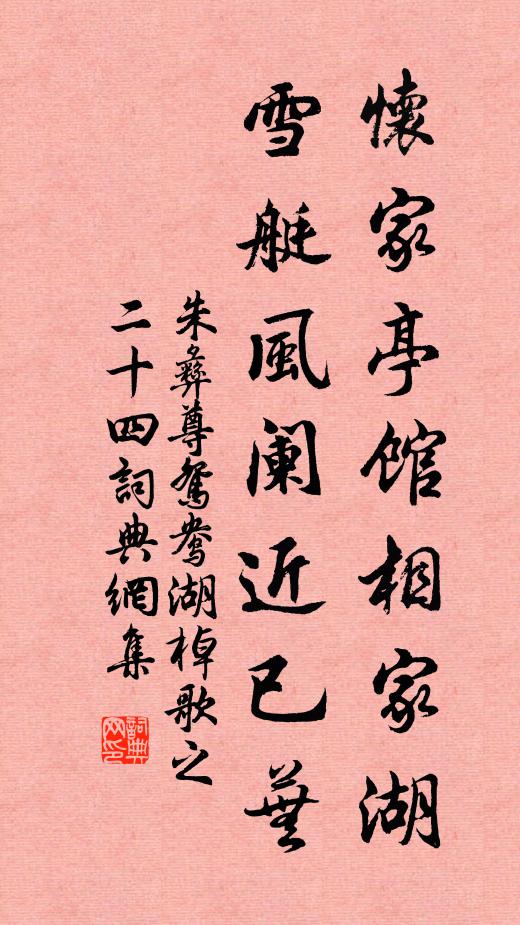 懷家亭館相家湖
雪艇風闌近已蕪
朱彝尊鴛鴦湖棹歌之
二十四詞典網集
詞典
网印